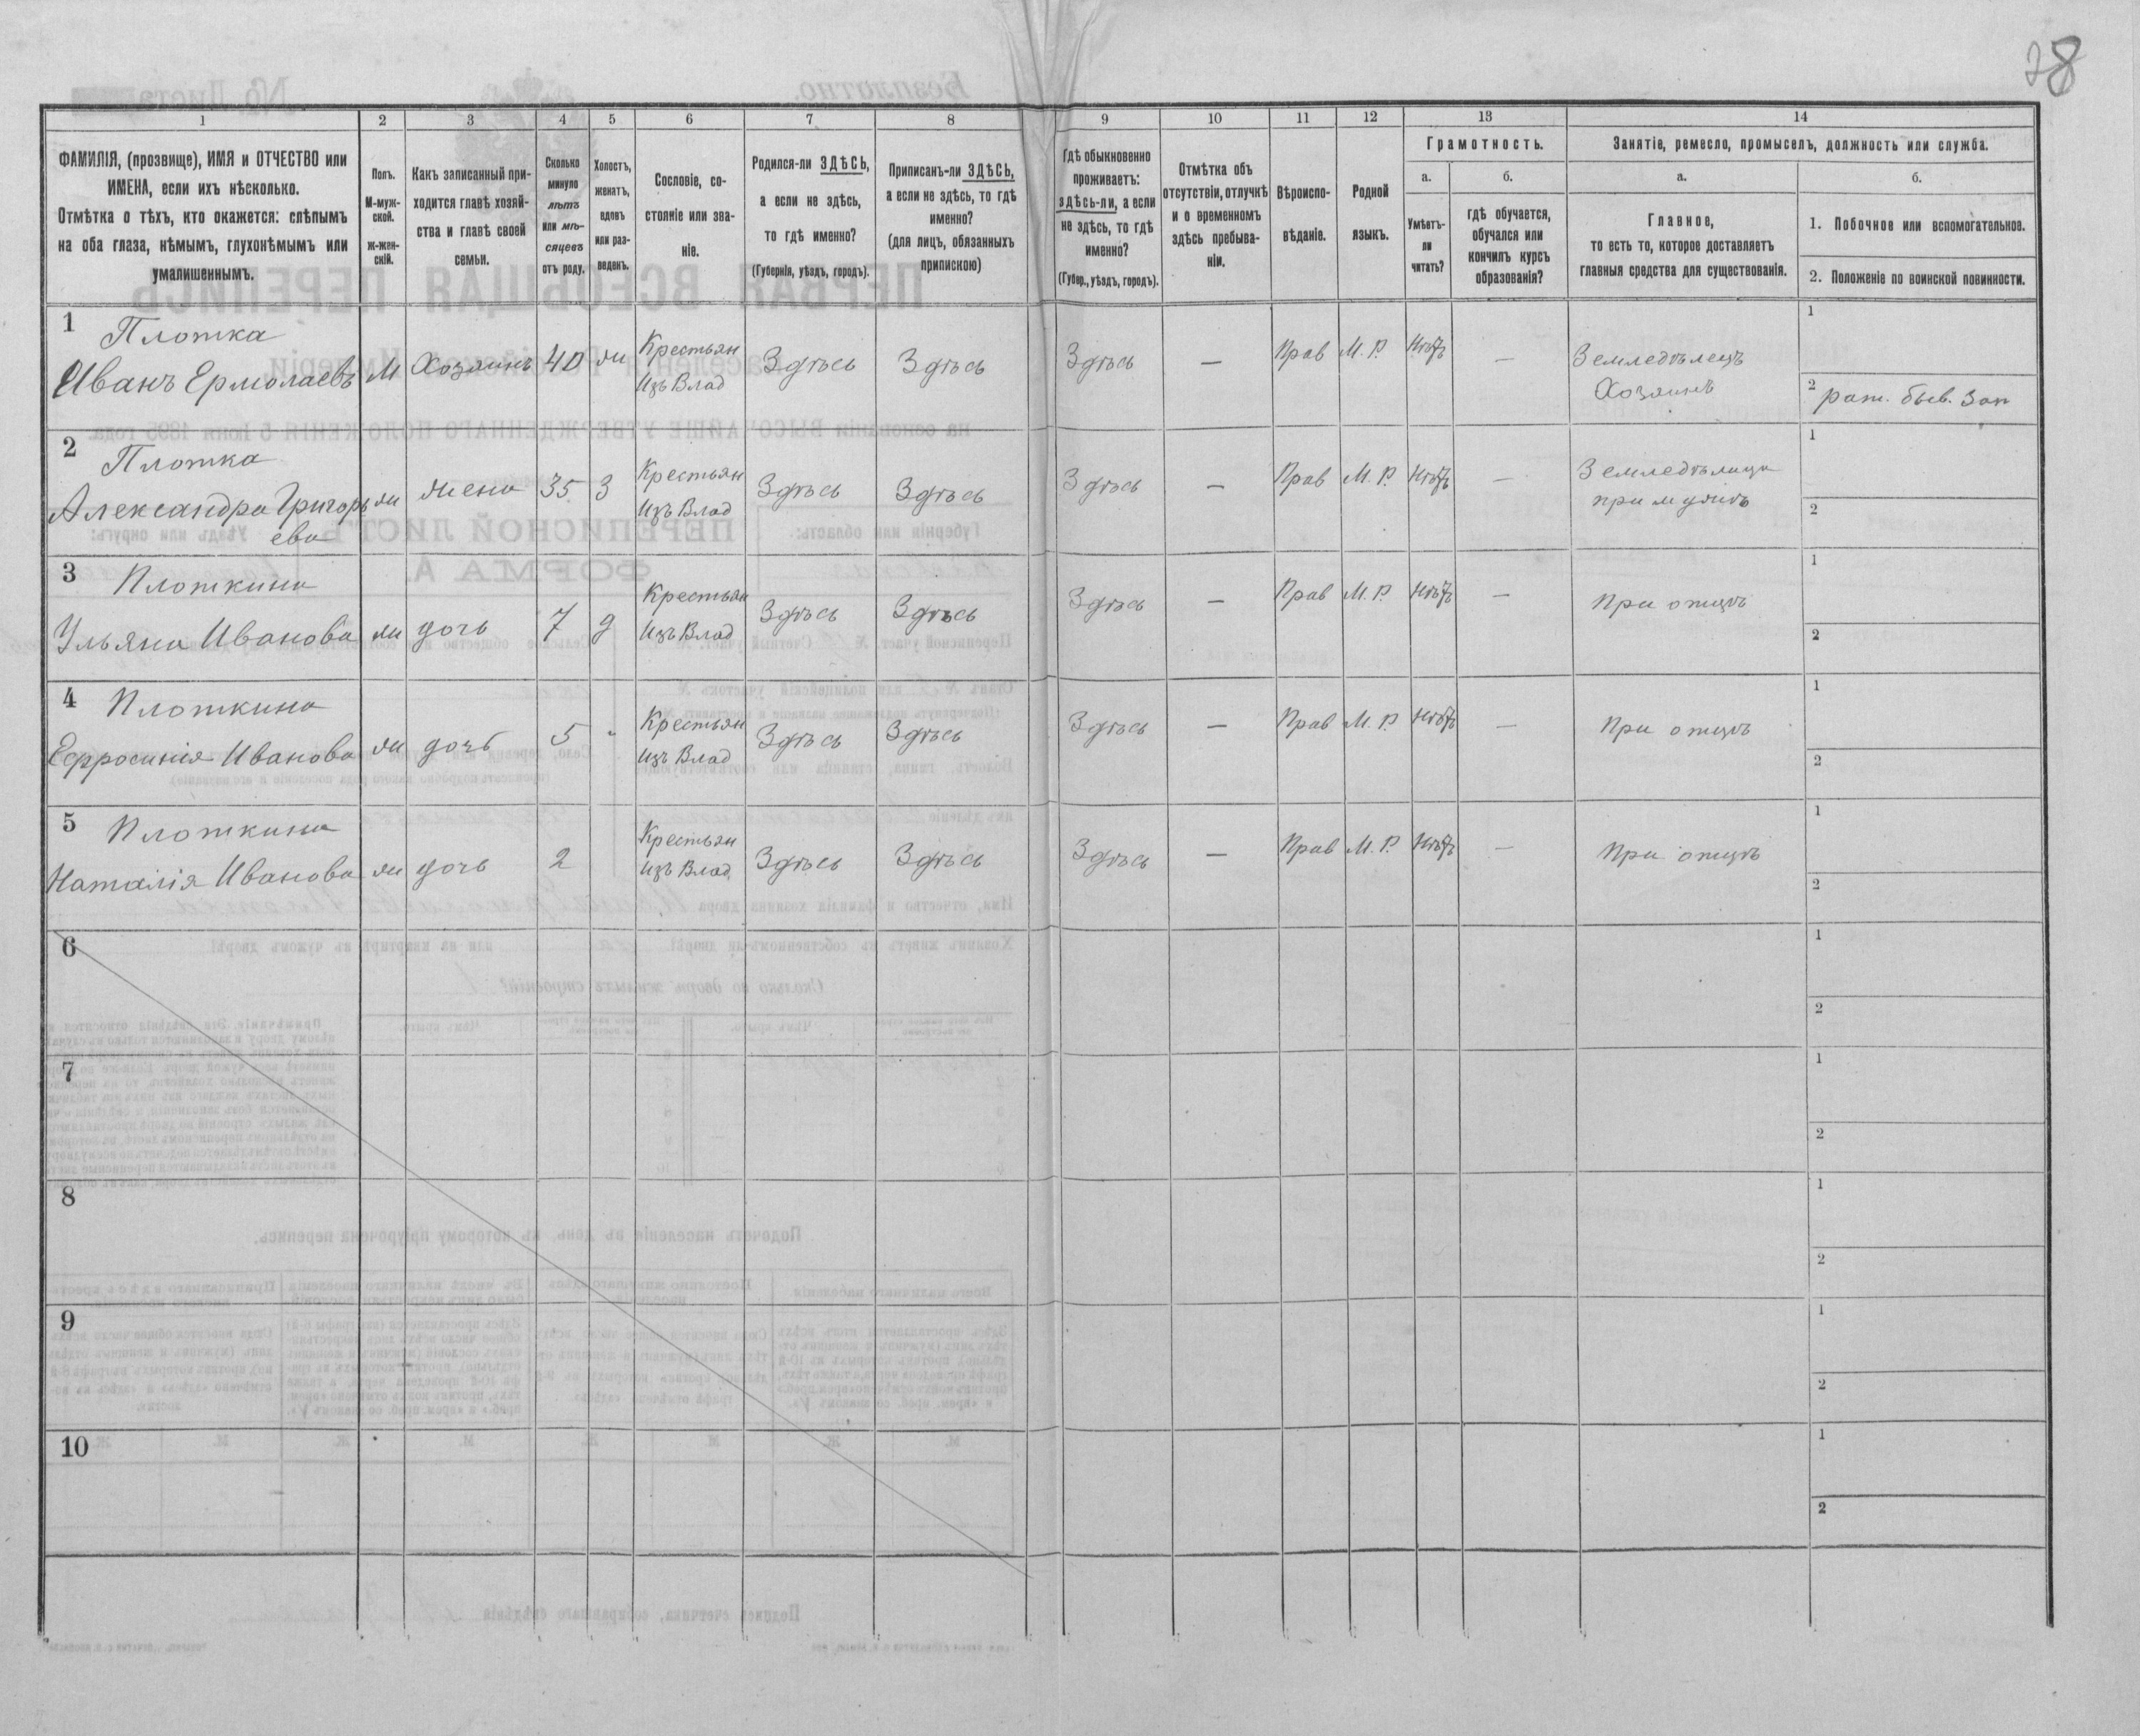 28
1 2 3 4 5 6 7 8 9 10 11 12 13 14
ФАМИЛІЯ, (прозвище), ИМЯ и ОТЧЕСТВО или
ИМЕНА, если ихъ нѣсколько.
Отмѣтка о тѣхъ, кто окажется: слѣпымъ
на оба глаза, нѣмымъ, глухонѣмымъ или
умалишеннымъ.
Полъ.
М-муж-
ской.
ж-жен-
скій.
Какъ записанный при-
ходится главѣ хозяй-
ства и главѣ своей
семьи.
Сколько
минуло
лѣтъ
или мѣ-
сяцевъ
отъ роду.
Холостъ,
женатъ,
вдовъ
или раз-
веденъ.
Сословіе, со-
стояніе или зва-
ніе.
Родился-ли ЗДѢСЬ,
а если не здѣсь,
то гдѣ именно?
(Губернія, уѣздъ, городъ).
Приписанъ-ли ЗДѢСЬ,
а если не здѣсь, то гдѣ
именно?
(для лицъ, обязанныхъ
припискою)
Гдѣ обыкновенно
проживаетъ:
здѣсь-ли, а если
не здѣсь, то гдѣ
именно?
(Губер., уѣздъ, городъ).
Отмѣтка объ
отсутствіи, отлучкѣ
и о временномъ
здѣсь пребыва-
ніи.
Вѣроиспо-
вѣданіе.
Родной
языкъ.
Грамотность.
а.
Умѣетъ-
ли
читать?
б.
гдѣ обучается,
обучался или
кончилъ курсъ
образованія?
Занятіе, ремесло, промыселъ, должность или служба.
а.
Главное,
то есть то, которое доставляетъ
главныя средства для существованія.
б.
1. Побочное или вспомогательное.
2. Положеніе по воинской повинности.
1 Плотка 1
Иванъ Ермолаевъ М Хозяинъ 40 ж Крестьян Здѣсь Здѣсь Здѣсь — Прав М.Р. Нѣтъ — Земледѣлецъ
Изъ Влад Хозяинъ 2 рат. быв. Зап
2 Плотка 1
Александра Григорь ж жена 35 З Крестьян Здѣсь Здѣсь Здѣсь — Прав М.Р. Нѣтъ — Земледѣлица
ева Изъ Влад при мужѣ 2
3 Плоткина 1
Ульяна Иванова ж дочь 7 д Крестьян Здѣсь Здѣсь Здѣсь — Прав М.Р. Нѣтъ — При отцѣ
Изъ Влад 2
4 Плоткина 1
Ефросинія Иванова ж дочь 5 " Крестьян Здѣсь Здѣсь Здѣсь — Прав М.Р. Нѣтъ — При отцѣ
Изъ Влад 2
5 Плоткина 1
Наталія Иванова ж дочь 2 Крестьян Здѣсь Здѣсь Здѣсь — Прав М.Р. Нѣтъ — При отцѣ
Изъ Влад. 2
6 1
2
7 1
2
8 1
2
9 1
2
10 1
2